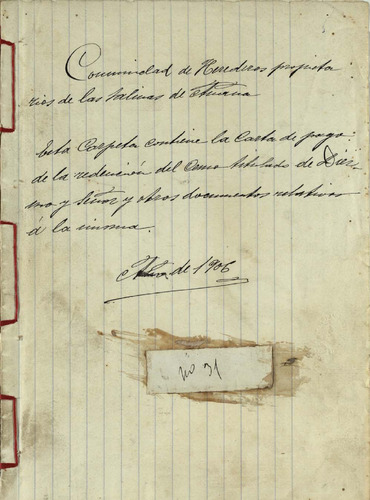 Comunidad de Herederos propieta
rios de las Salinas de Añana
Esta Carpeta contiene la Carta de pago
de la redención del Censo titulado de Diez
mo y Señor y otros documentos relativos
á la misma.
de 1906
nº 31